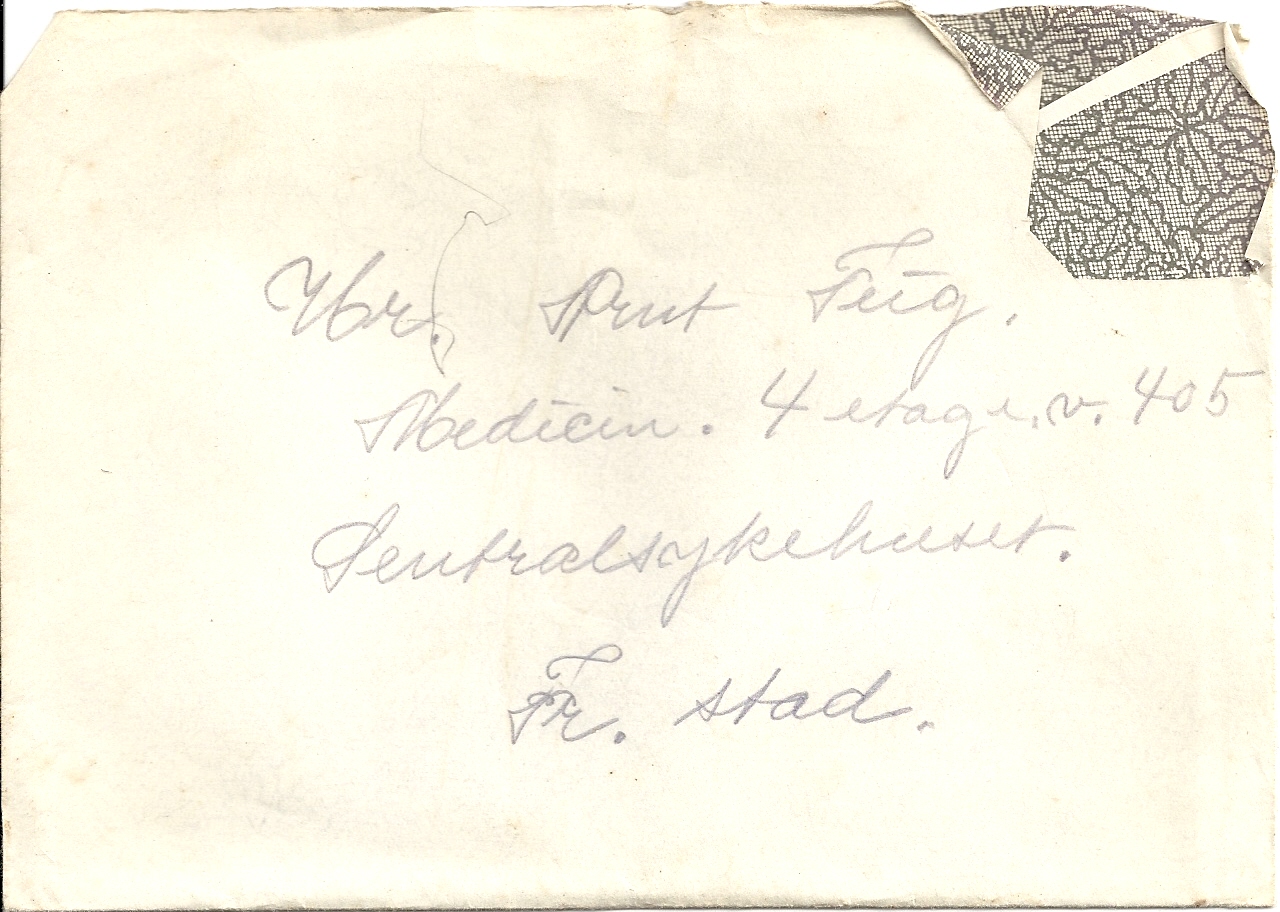 Hr. Arnt
Medicin. 4 etage. v. 405
Sentralsykehuset.
Fr. stad.